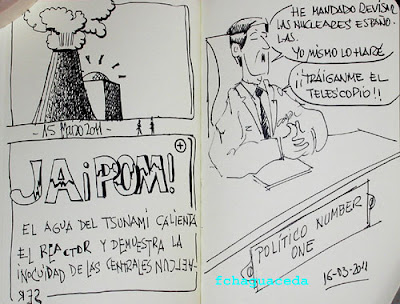 - 15 MARZO 2011 -
JA¡POM!
EL AGUA DEL TSUNAMI CALIENTA
EL REACTOR Y DEMUESTRA LA
INOCUIDAD DE LAS CENTRALES -AELCUN
SER
HE MANDADO REVISAR
LAS NUCLEARES ESPAÑO-
LAS.
YO MISMO LO HARÉ
¡¡TRÁIGANME EL
TELESCOPIO!!
POLÍTICO NUMBER
ONE
16-03-2011
fchaguaceda